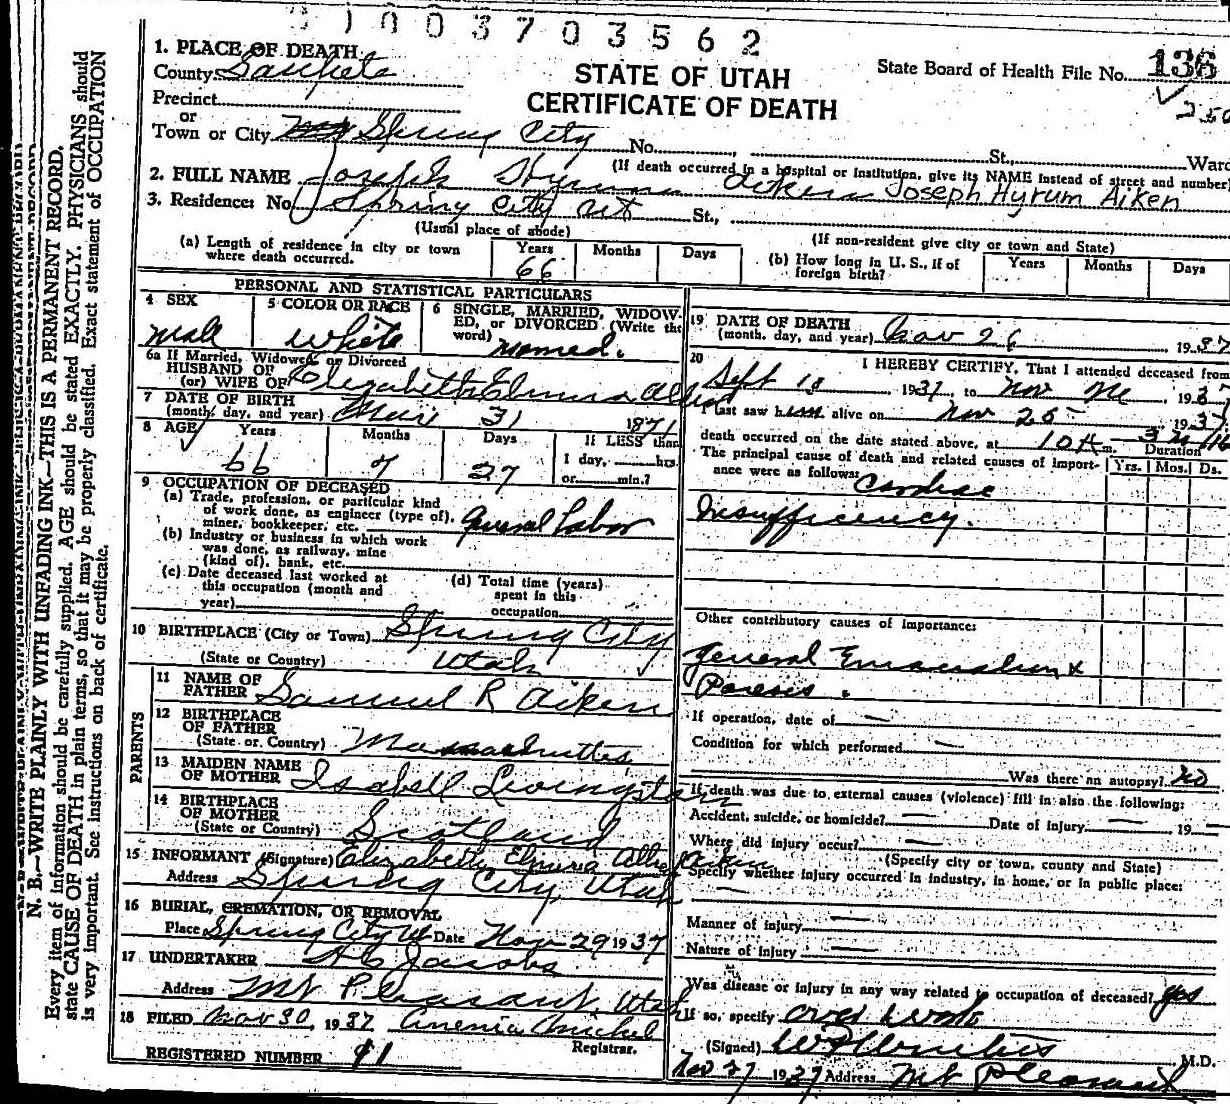 3 7 0 3 5 6 2
136
250
STATE OF UTAH
CERTIFICATE OF DEATH
State Board of Health File No. 136
1. PLACE OF DEATH
County Sanpete
Precinct
or
Town or City Spring City No. St., Ward
(If death occurred in a hospital or institution, give its NAME instead of street and number)
2. FULL NAME Joseph Hyrum Aiken Joseph Hyrum Aiken
3. Residence: No. Spring City Ut St.,
(Usual place of abode)
(If non-resident give city or town and State)
(a) Length of residence in city or town where death occurred. Years 66 Months Days
(b) How long in U. S., if of foreign birth? Years Months Days
PERSONAL AND STATISTICAL PARTICULARS
4 SEX Male
5 COLOR OR RACE White
6 SINGLE, MARRIED, WIDOWED, or DIVORCED (Write the word) Married.
6a If Married, Widowed, or Divorced
HUSBAND OF
(or) WIFE OF Elizabeth Elmira Allred
7 DATE OF BIRTH
(month, day, and year) Mar 31 1871
8 AGE Years 66 Months 7 Days 27 If LESS than 1 day, hrs. or min.?
9 OCCUPATION OF DECEASED
(a) Trade, profession, or particular kind of work done, as engineer (type of), miner, bookkeeper, etc. General Labor
(b) Industry or business in which work was done, as railway, mine (kind of), bank, etc.
(c) Date deceased last worked at this occupation (month and year)
(d) Total time (years) spent in this occupation
10 BIRTHPLACE (City or Town) Spring City
(State or Country) Utah
PARENTS
11 NAME OF FATHER Samuel R Aiken
12 BIRTHPLACE OF FATHER
(State or Country) Massachusettes
13 MAIDEN NAME OF MOTHER Isabell Livingston
14 BIRTHPLACE OF MOTHER
(State or Country) Scotland
15 INFORMANT (Signature) Elizabeth Elmira Allred Aiken
Address Spring City, Utah
16 BURIAL, CREMATION, OR REMOVAL
Place Spring City Ut Date Nov 29 1937
17 UNDERTAKER A C Jacobs
Address Mt Pleasant, Utah
18 FILED Nov 30, 1937
Registrar.
REGISTERED NUMBER 91
19 DATE OF DEATH
(month, day, and year) Nov 26 1937
20 I HEREBY CERTIFY, That I attended deceased from
Sept 18 1937, to Nov 1937
I last saw him alive on Nov 25 1937
death occurred on the date stated above, at 10 A m. Duration
The principal cause of death and related causes of importance were as follows: Yrs. Mos. Ds.
Cardiac
Insufficiency.
Other contributory causes of importance:
General Emaciation &
Paresis.
If operation, date of —
Condition for which performed —
Was there an autopsy? No
If death was due to external causes (violence) fill in also the following:
Accident, suicide, or homicide? — Date of injury — 19 —
Where did injury occur? —
(Specify city or town, county and State)
Specify whether injury occurred in industry, in home, or in public place:
—
Manner of injury —
Nature of injury —
Was disease or injury in any way related to occupation of deceased? yes
If so, specify over work
(Signed) M.D.
Nov 27 1937 Address Mt Pleasant
N. B.—WRITE PLAINLY WITH UNFADING INK—THIS IS A PERMANENT RECORD.
Every item of information should be carefully supplied. AGE should be stated EXACTLY. PHYSICIANS should
state CAUSE OF DEATH in plain terms, so that it may be properly classified. Exact statement of OCCUPATION
is very important. See instructions on back of certificate.